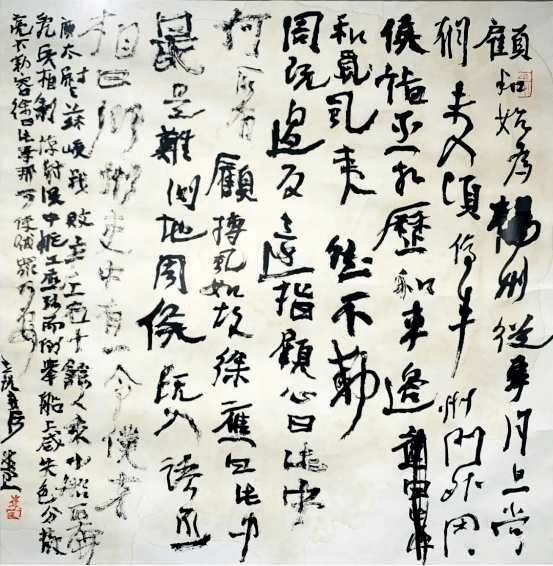 顧和始為揚州從事月旦當
朝未入頃停車州門外周
侯詣丞相歷和車邊
和覓虱夷然不動
周既過反還指顧心曰此中
何所有顧搏虱如故徐應曰此中
最是難測地周侯既入語丞
相曰卿州吏中有一令僕才
庾太尉與蘇峻戰敗率左右十餘人乘小船西奔
亂兵相剝掠射誤中柂工應弦而倒舉船上咸失色分散
亮不動容徐曰此手那可使賊眾乃安
世說